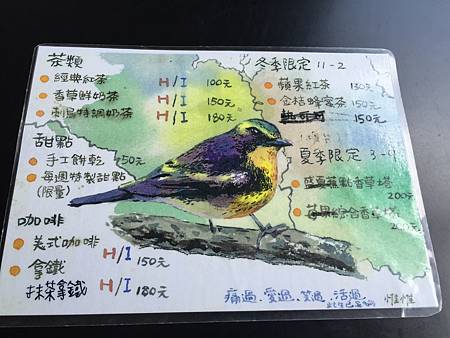 茶類
經典紅茶 H/I 100元
香草鮮奶茶 H/I 150元
刺鳥特調奶茶 H/I 180元
甜點
手工餅乾 150元
每週特製甜點
(限量)
咖啡
美式咖啡 H/I 150元
拿鐵
抹茶拿鐵 H/I 180元
冬季限定 11-2
蘋果紅茶 130元
金桔蜂蜜茶 150元
150元
夏季限定 3-9
盛夏蘋點香草塔
200元
200元
痛過、愛過、笑過、活過
惟惟